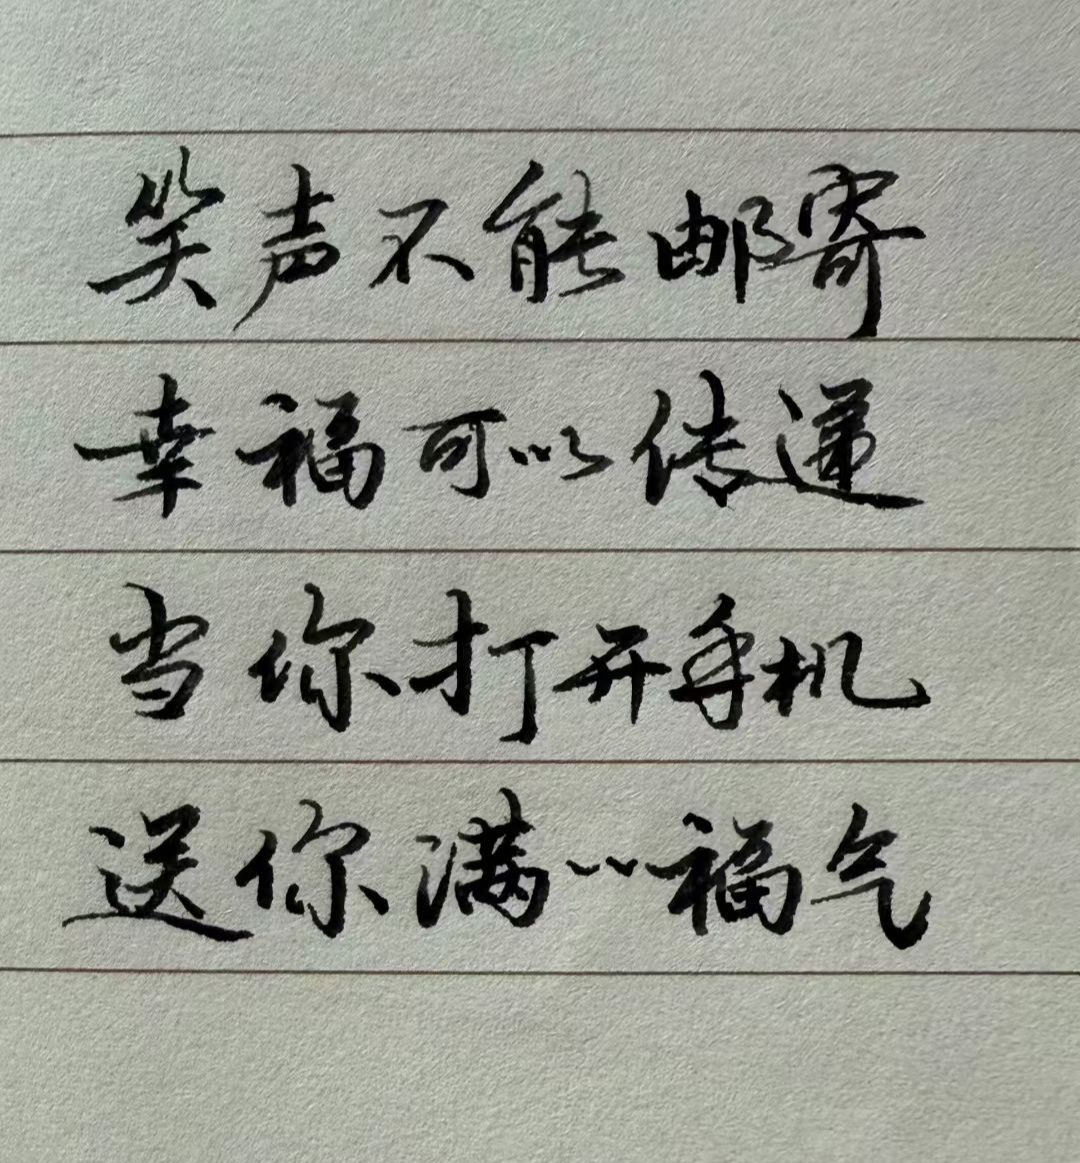 笑声不能邮寄
幸福可以传递
当你打开手机
送你满满福气